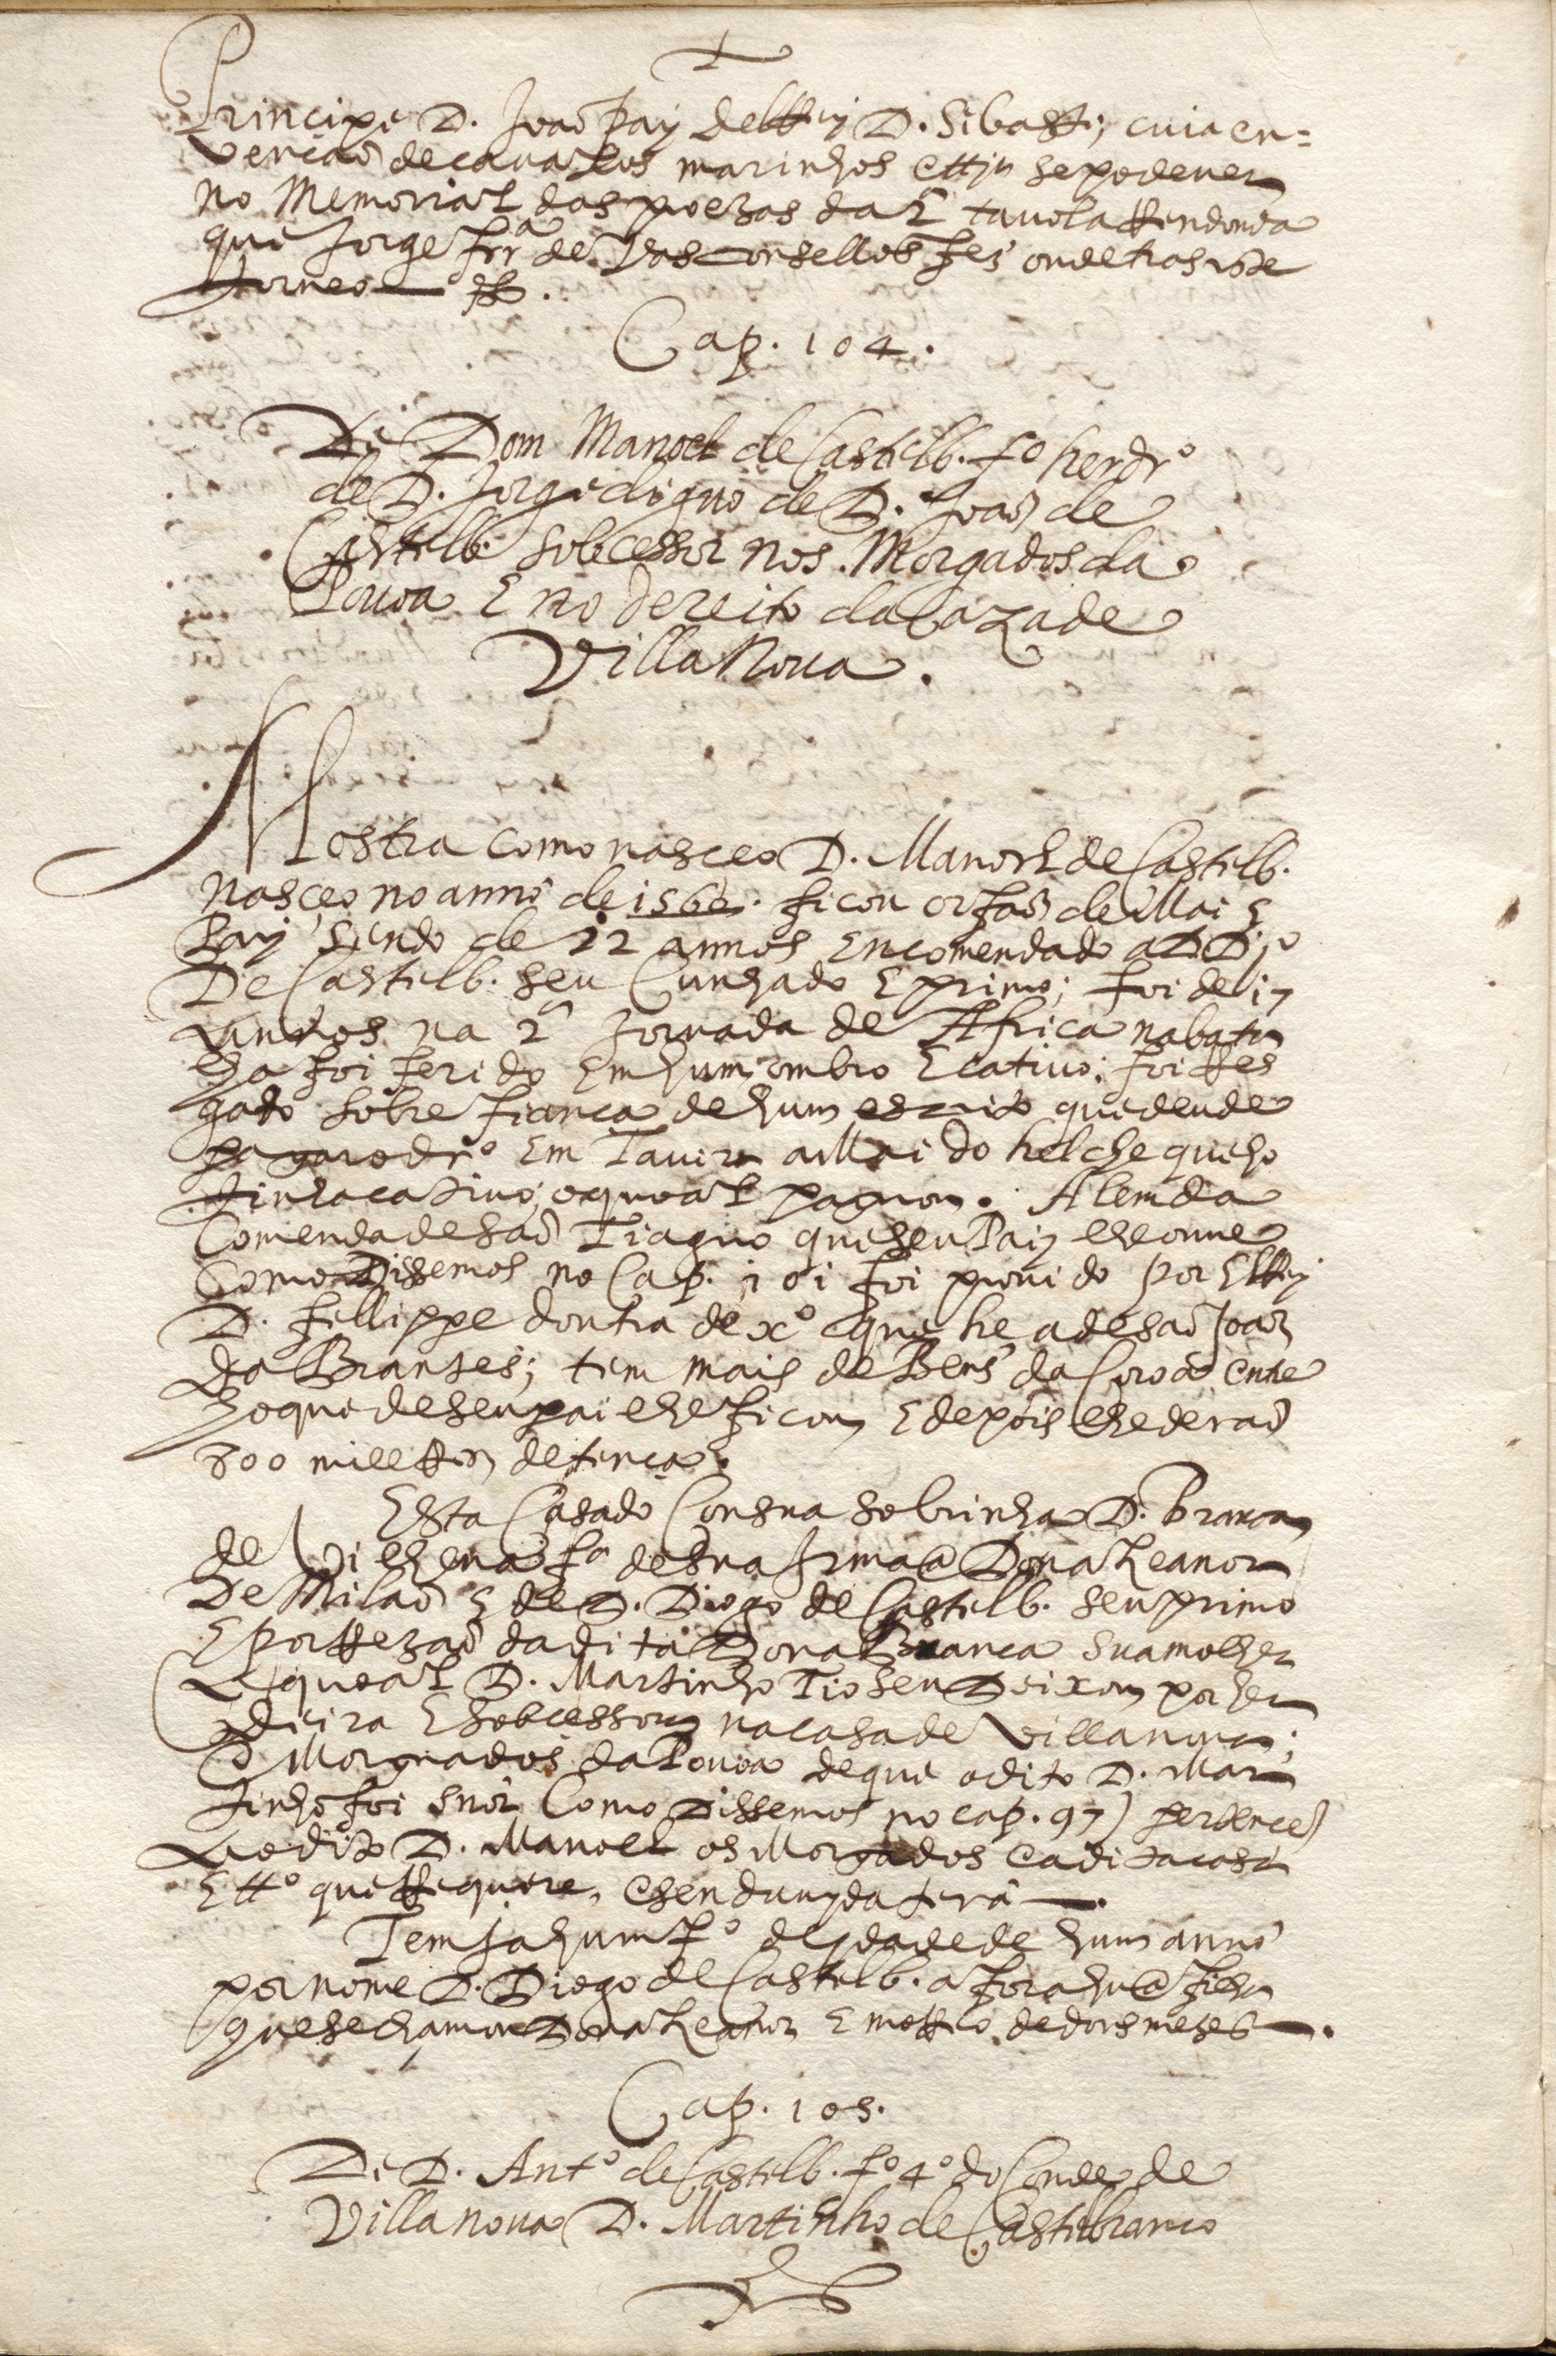 Principe D. Joaõ Pay delRey D. Sibastt; cuia en=
vençaõ de caualos marinhos ettª se pode ver
no Memorial das proezas da 2ª tauola Rendonda
que Jorge Frrª de Vasconsellos fez onde tras este
torneo
Cap. 104.
De Dom Manoel de Castelb. fº herdrº
de D. Jorge digno de D. Joaõ de
Castelb. sobcessor nos Morgados da
Pouoa E no dereito da Caza de
Villa Noua.
Mostra como nasceo D. Manoel de Castelb.
Nasceo no anno de 1560. ficou orfaõ de Mai E
Pay sendo de 12 annos encomendado a D Dº
De Castelb. seu Cunhado E primo; foi de 17
annos na 2ª Jornada de Africa na bata
lha foi ferido Em hum ombro E catiuo; foi Res
gatado sobre fiança de hum escrito que deu de
pagar o drº Em Tauira a Mai do helche que ho
tinha catiuo, o qual pagou. Alem da
Comenda de saõ Tiaguo que seu Pai lhe ouue
Como Dissemos no Cap. 101 foi prouido por ElRey
D. Fellippe doutra de xº que he a de saõ Joaõ
da Brantes; tem mais de Bens da Coroa entre
ho que de seu pai lhe ficou E depois lhe deraõ
300 mil Rs de tença.
Esta Casado Con sua sobrinha D. Branca
de Vilhena fª de sua Irmaã Dona Leanor
De Milaõ E de D. Diogo de Castelb. seu primo
E por Rezaõ da dita Dona Branca sua molher
(A qual D. Martinho Tio seu Deixou por her
deira E sobcessora na casa de Villa noua;
E Morguados da Pouoa de que o dito D. Mar
tinho foi snõr Como Dissemos no cap. 97) pertence
ao dito D. Manoel os Morgados e a dita casa
E ttº que Requere, e sen duuyda tera.
Tem ja hum fº de ydade de hum anno
por nome D. Diogo de Castelb. a fora huã filha
que se chamou Dona Leanor E moRreo de dois meses.
Cap. 105.
De D. Antº de Castelb. fº 4º do Conde de
Villa noua D. Martinho de Castelbranco